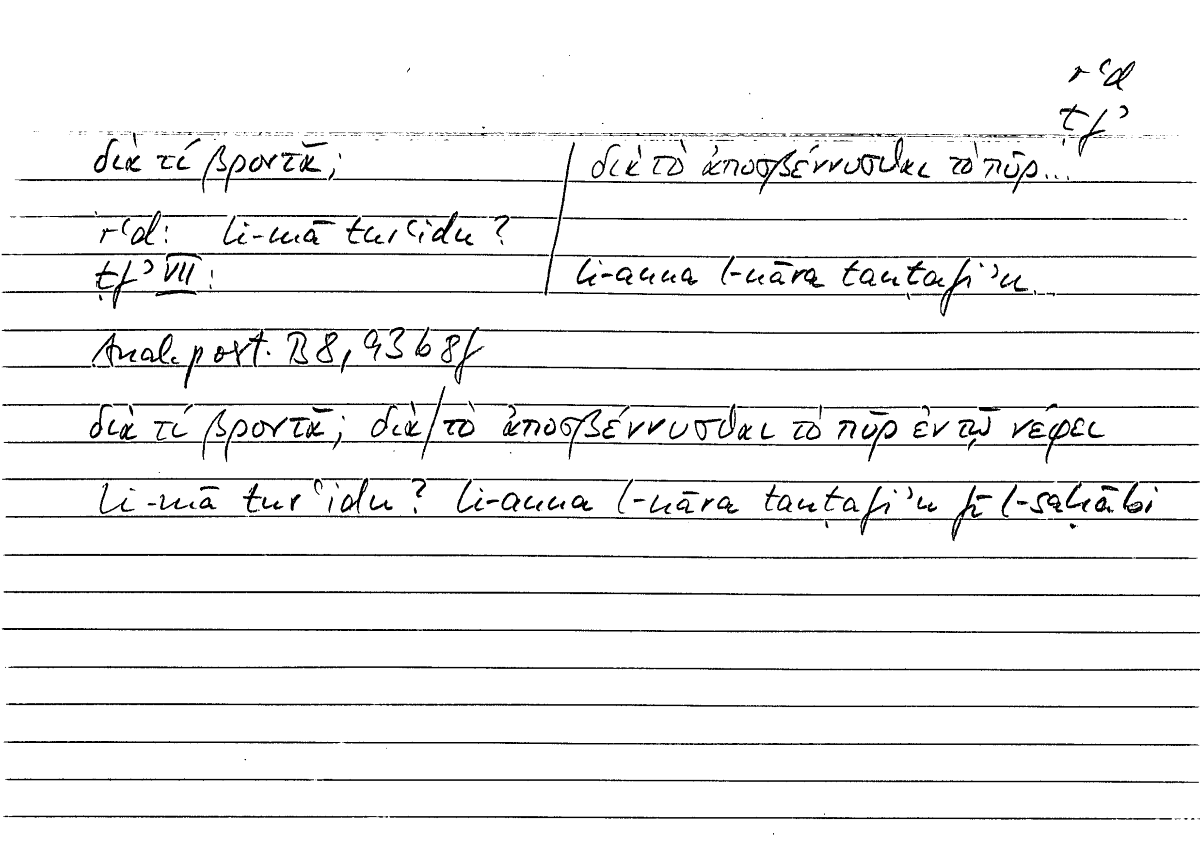 rʿd
ṭfʾ
διὰ τί βροντᾷ; / διὰ τὸ ἀποσβέννυσθαι τὸ πῦρ...
rʿd: li-mā turʿidu?
ṭfʾ VII: li-anna l-nāra tanṭafiʾu...
Anal. post. B 8, 93 b 8f
διὰ τί βροντᾷ; διὰ/τὸ ἀποσβέννυσθαι τὸ πῦρ ἐν τῷ νέφει
li-mā turʿidu? li-anna l-nāra tanṭafiʾu fī l-saḥābi